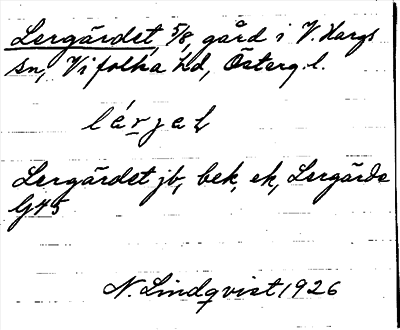 Lergärdet, 5/8, gård i V. Hargs
sn, Vifolka hd, Österg. l.
lérjeḷ
Lergärdet jb, bek, ek, Lergärde
G45
N. Lindqvist 1926